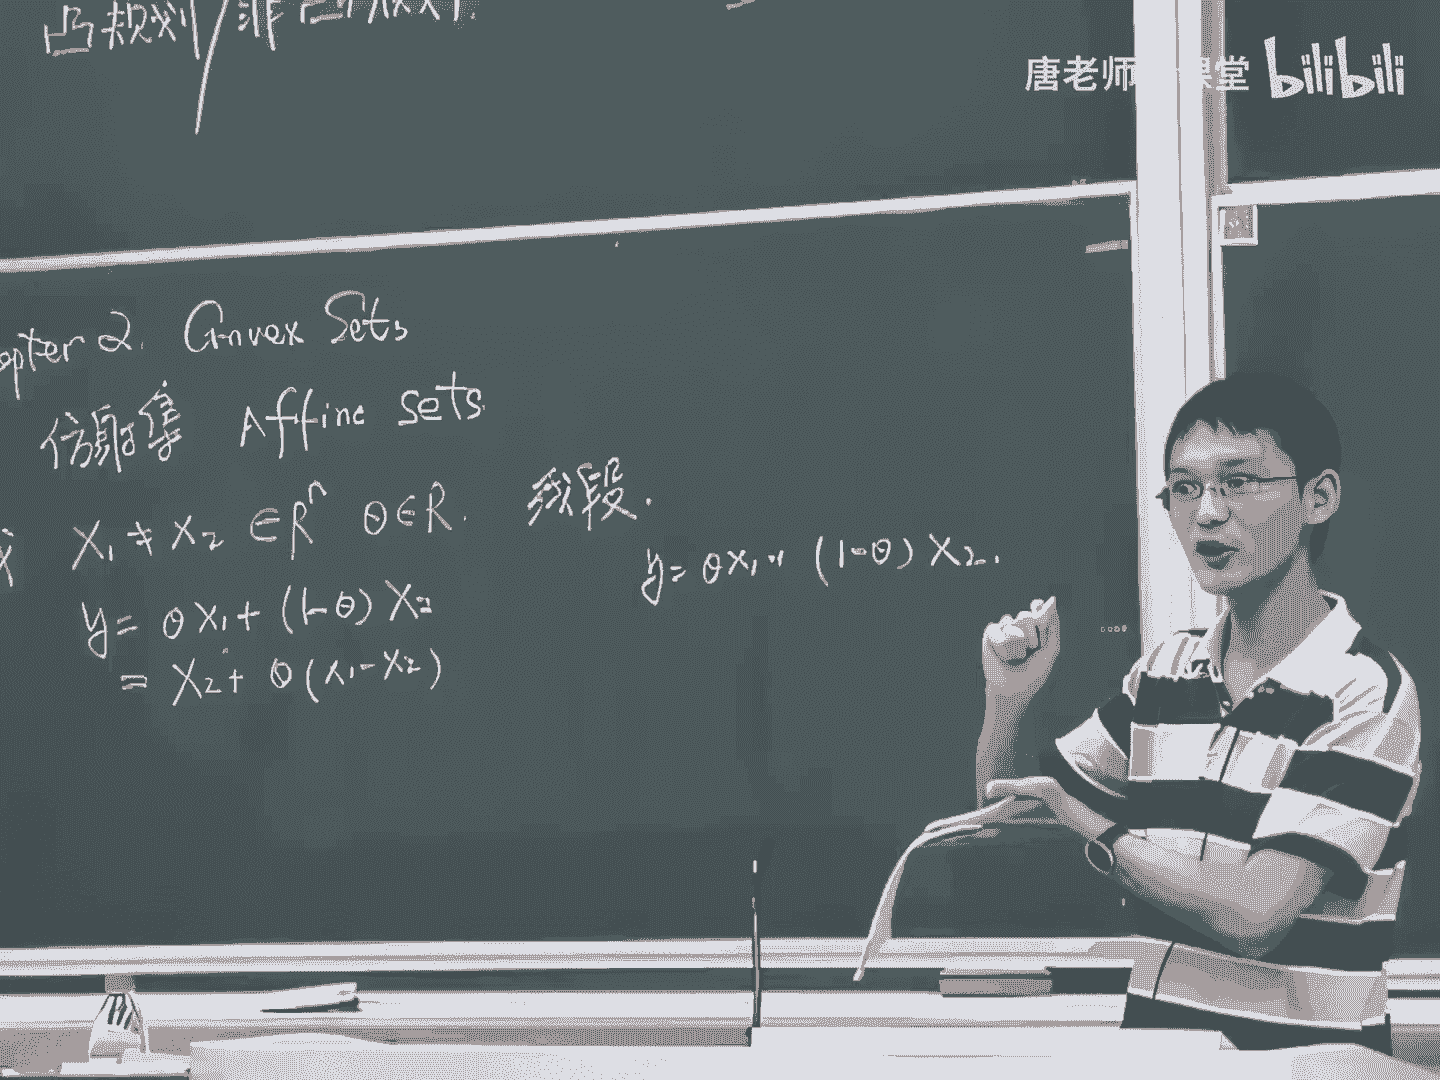 凸规划/非凸规划.
唐老师 课堂 bilibili
apter 2. Convex Sets
仿射集 Affine sets
X₁ ≠ X₂ ∈ Rⁿ θ ∈ R. 线段.
y = θX₁ + (1-θ) X₂.
y = θX₁ + (1-θ) X₂
= X₂ + θ(X₁ - X₂)